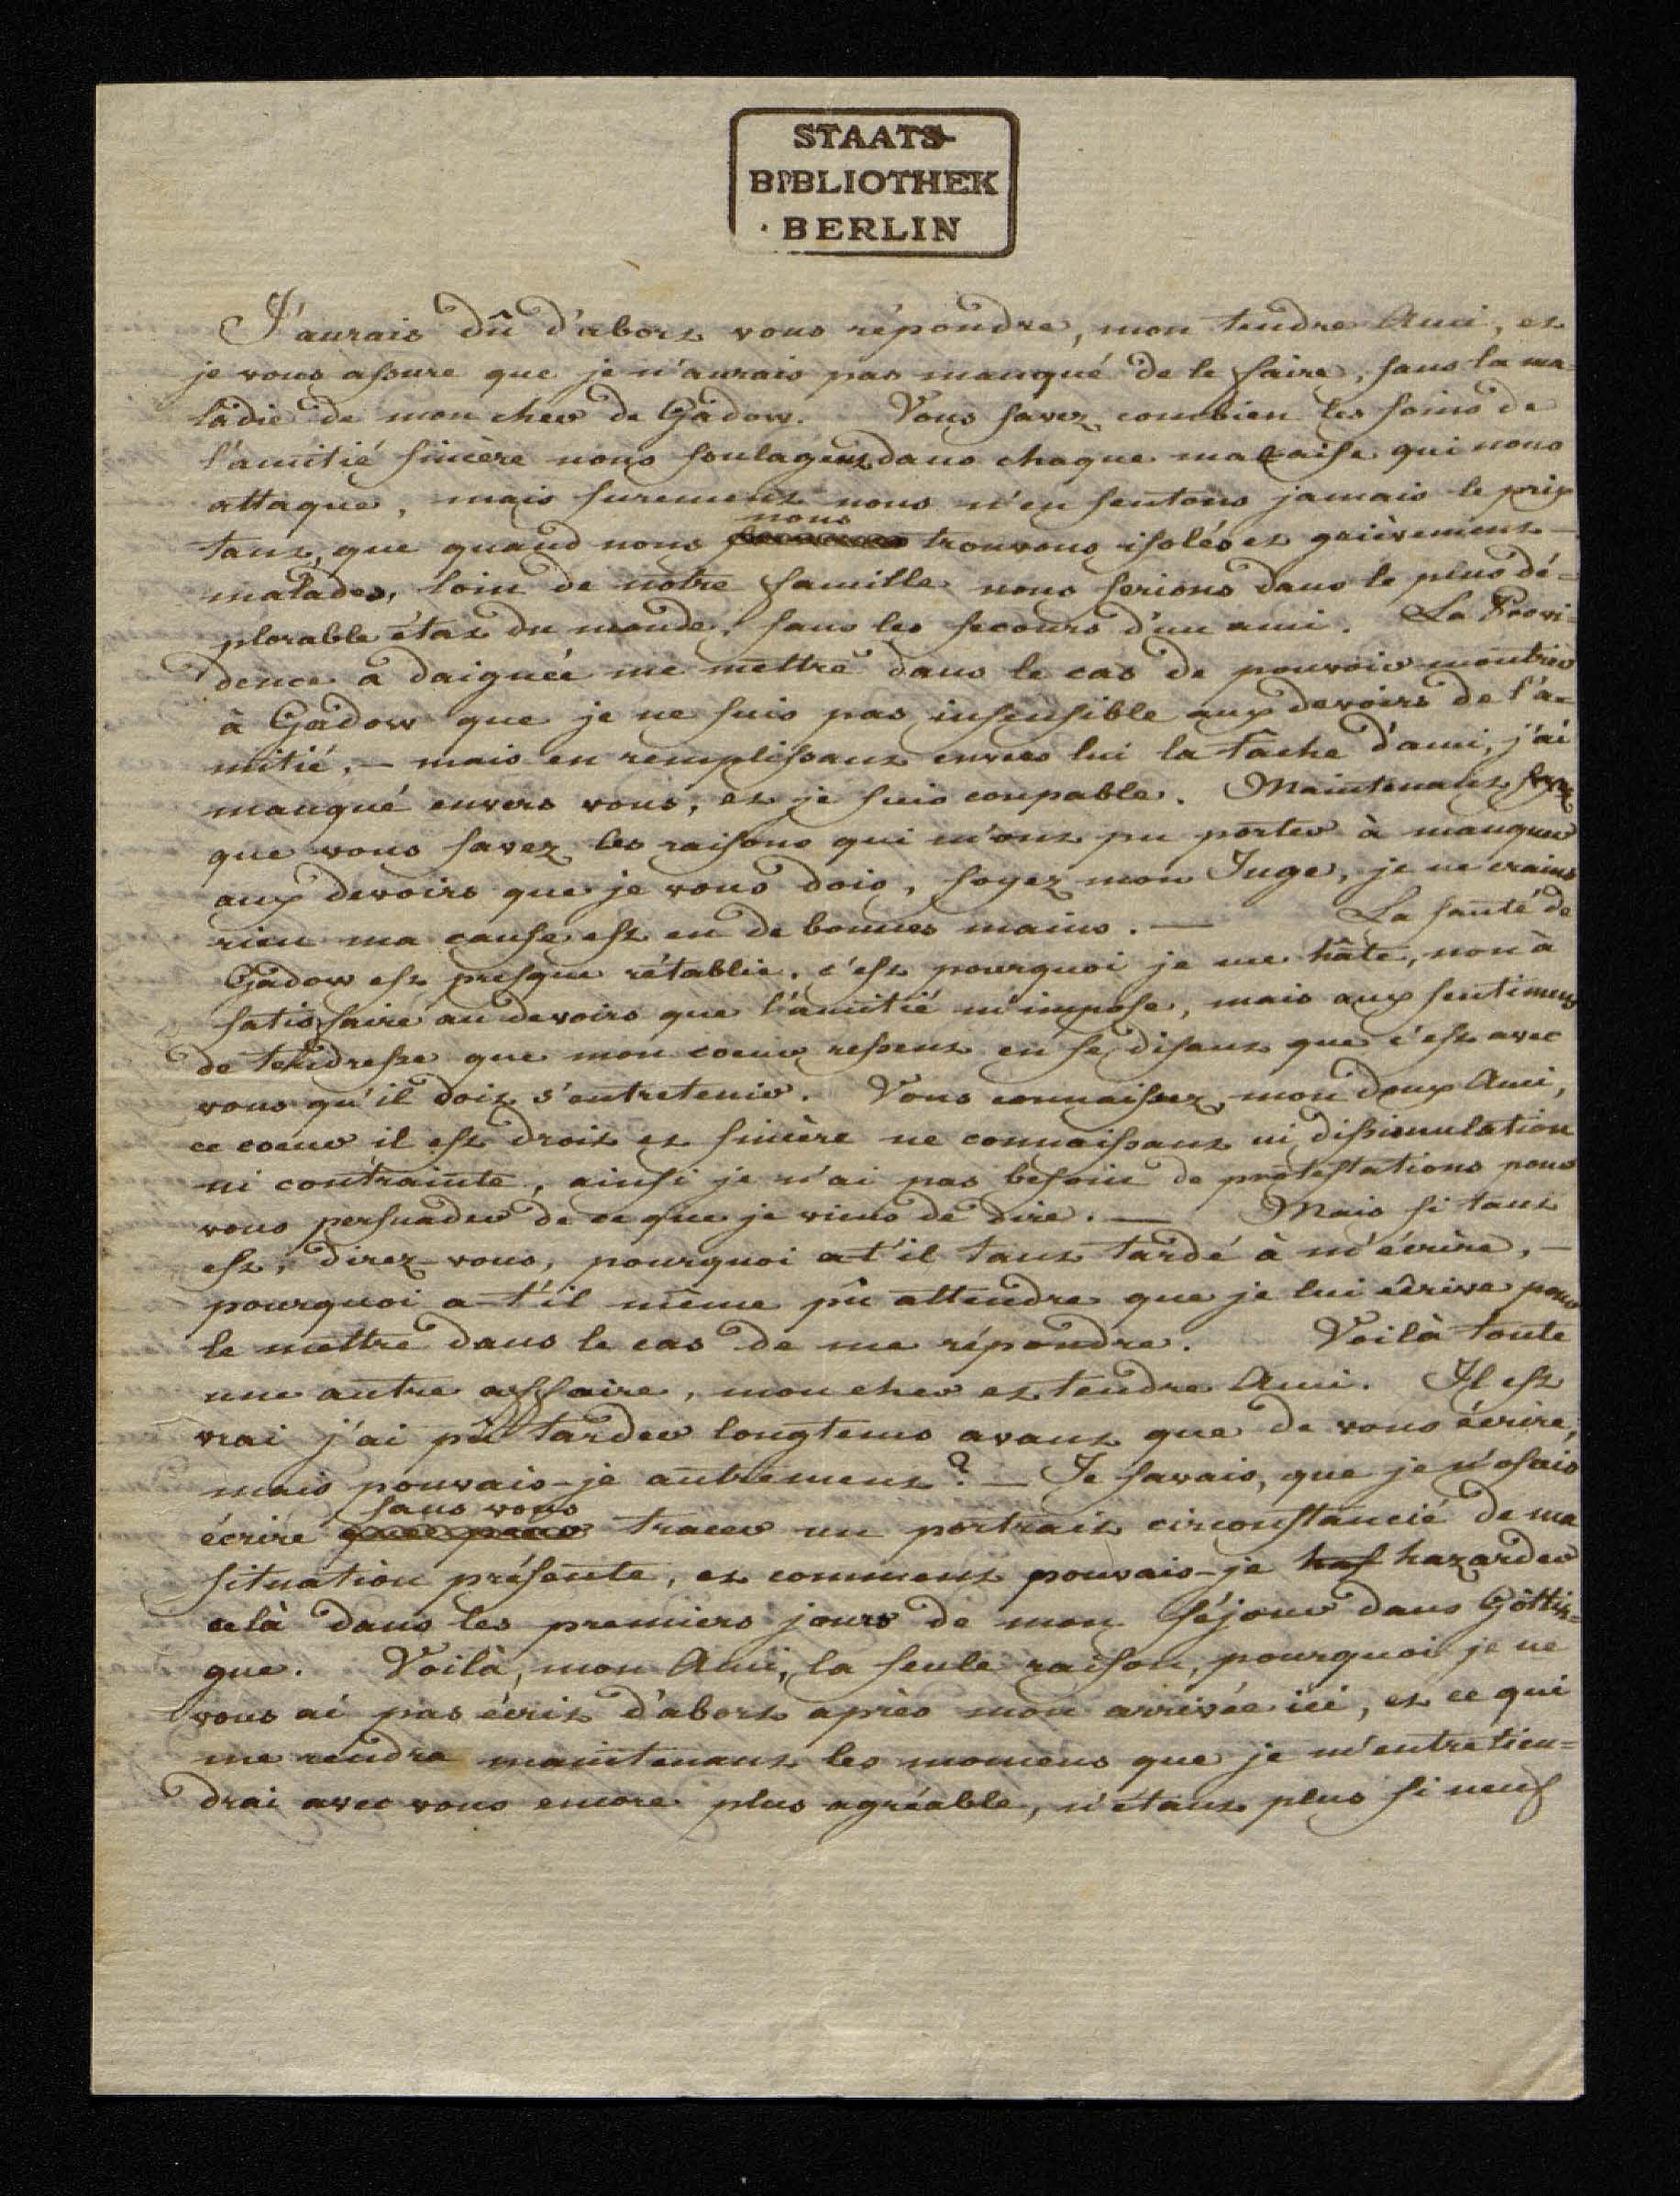 STAATS-
BIBLIOTHEK
BERLIN
J'aurais dû d'abort vous répondre, mon tendre Ami, et
je vous assure que je n'aurais pas manqué de le faire, sans la ma-
ladie de mon cher de Gadow. Vous savez combien les soins de
l'amitié sincère nous soulagent dans chaque malaise qui nous
attaque, mais surement nous n'en sentons jamais le prix
tant, que quand nous nous trouvons isolés et grièvement -
malades, loin de notre famille nous serions dans le plus dé=
plorable état du monde, sans les secours d'un ami. La Provi-
dence a daignée me mettre dans le cas de pouvoir montrer
à Gadow que je ne suis pas insensible aux devoirs de l'a-
mitié, — mais en remplissant envers lui la tache d'ami, j'ai
manqué envers vous, et je suis coupable. Maintenant
que vous savez les raisons qui m'ont pu porter à manquer
aux devoirs que je vous dois, soyez mon Juge, je ne crains
rien ma cause est en de bonnes mains. — La santé de
Gadow est presque rétablie, c'est pourquoi je me hâte, non à
satisfaire au devoirs que l'amitié m'impose, mais aux sentimens
de tendresse que mon coeur ressent en se disant que c'est avec
vous qu'il doit s'entretenir. Vous connaissez, mon doux Ami,
ce coeur il est droit et sincère ne connaissant ni dissimulation
ni contrainte, ainsi je n'ai pas besoin de protestations pour
vous persuader de ce que je viens de dire. — Mais si tant
est, direz-vous, pourquoi a-t'il tant tardé à m'écrire, —
pourquoi a-t'il même pû attendre que je lui écrive pour
le mettre dans le cas de me répondre. Voilà toute
une autre affaire, mon cher et tendre Ami. Il est
vrai j'ai pû tarder longtems avant que de vous écrire,
mais pouvais-je autrement? — Je savais, que je n'osais
écrire sans vous tracer un portrait circonstancié de ma
situation présente, et comment pouvais-je has hazarder
celà dans les premiers jours de mon séjour dans Göttin=
gue. Voilà, mon Ami, la seule raison, pourquoi je ne
vous ai pas écrit d'abort après mon arrivée ici, et ce qui
me rendra maintenant les momens que je m'entretien=
drai avec vous encore plus agréable, n'étant plus si neuf